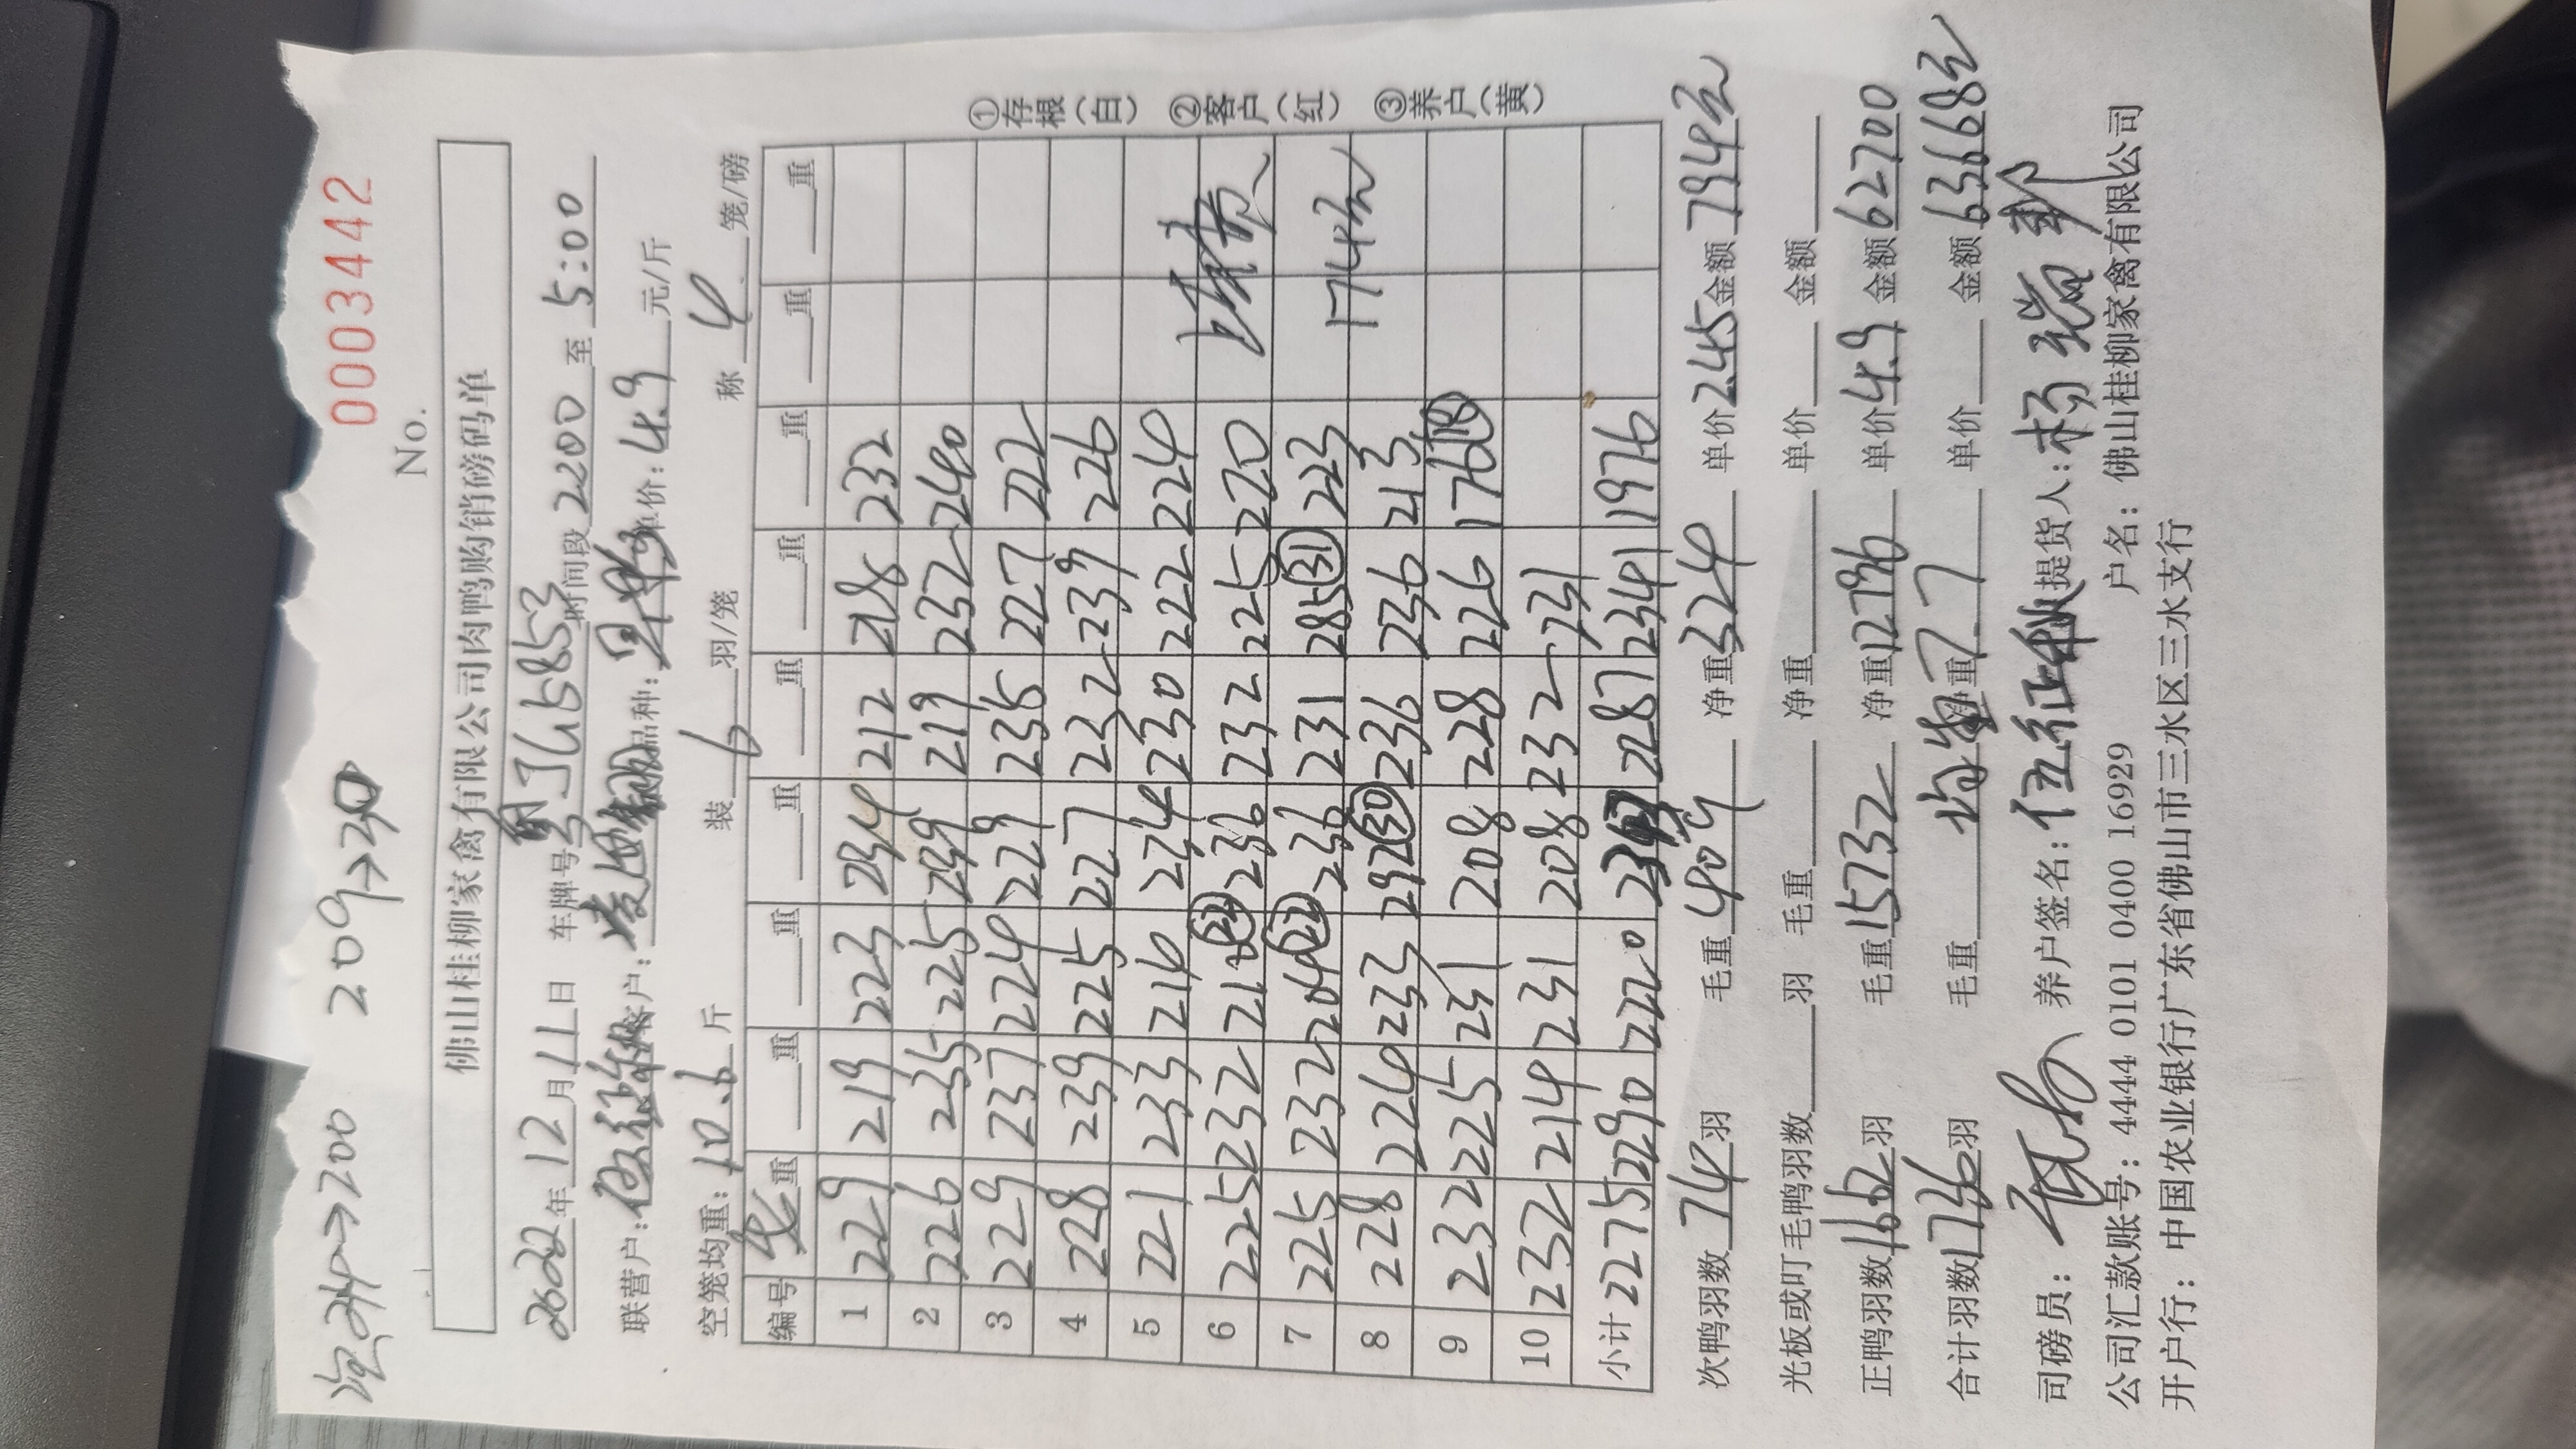 209→30
No. 0003442
佛山桂柳家禽有限公司肉鸭购销磅码单
2022年12月11日 车牌号 时间段2200至5:00
联营户: 客户: 品种: 单价:4.9元/斤
空笼均重:10.6斤 装6羽/笼 称4笼/磅
编号 重 重 重 重 重 重 重 重 重
1 229 219 223 234 212 218 232
2 226 235 225 239 219 232 240
3 229 237 224 229 235 227 222
4 228 239 225 227 232 239 226
5 221 233 216 224 230 222 224
6 225 232 236 232 225 220
7 225 232 204(22) 236 231 285(31) 223
8 228 224 233 292(30) 236 236 213
9 232 225 231 208 228 226 176(18)
10 232 214 231 208 232 231
174元
小计 2275 2290 2220 2287 2341 1976
①存根(白) ②客户(红) ③养户(黄)
次鸭羽数74羽 毛重409 净重324 单价2.45金额794元
光板或叮毛鸭羽数 羽 毛重 净重 单价 金额
正鸭羽数1662羽 毛重15732 净重12796 单价4.9 金额62700
合计羽数1736羽 毛重 净重7.7 单价 金额63668元
司磅员: 养户签名: 提货人:
公司汇款账号: 4444 0101 0400 16929 户名: 佛山桂柳家禽有限公司
开户行: 中国农业银行广东省佛山市三水区三水支行